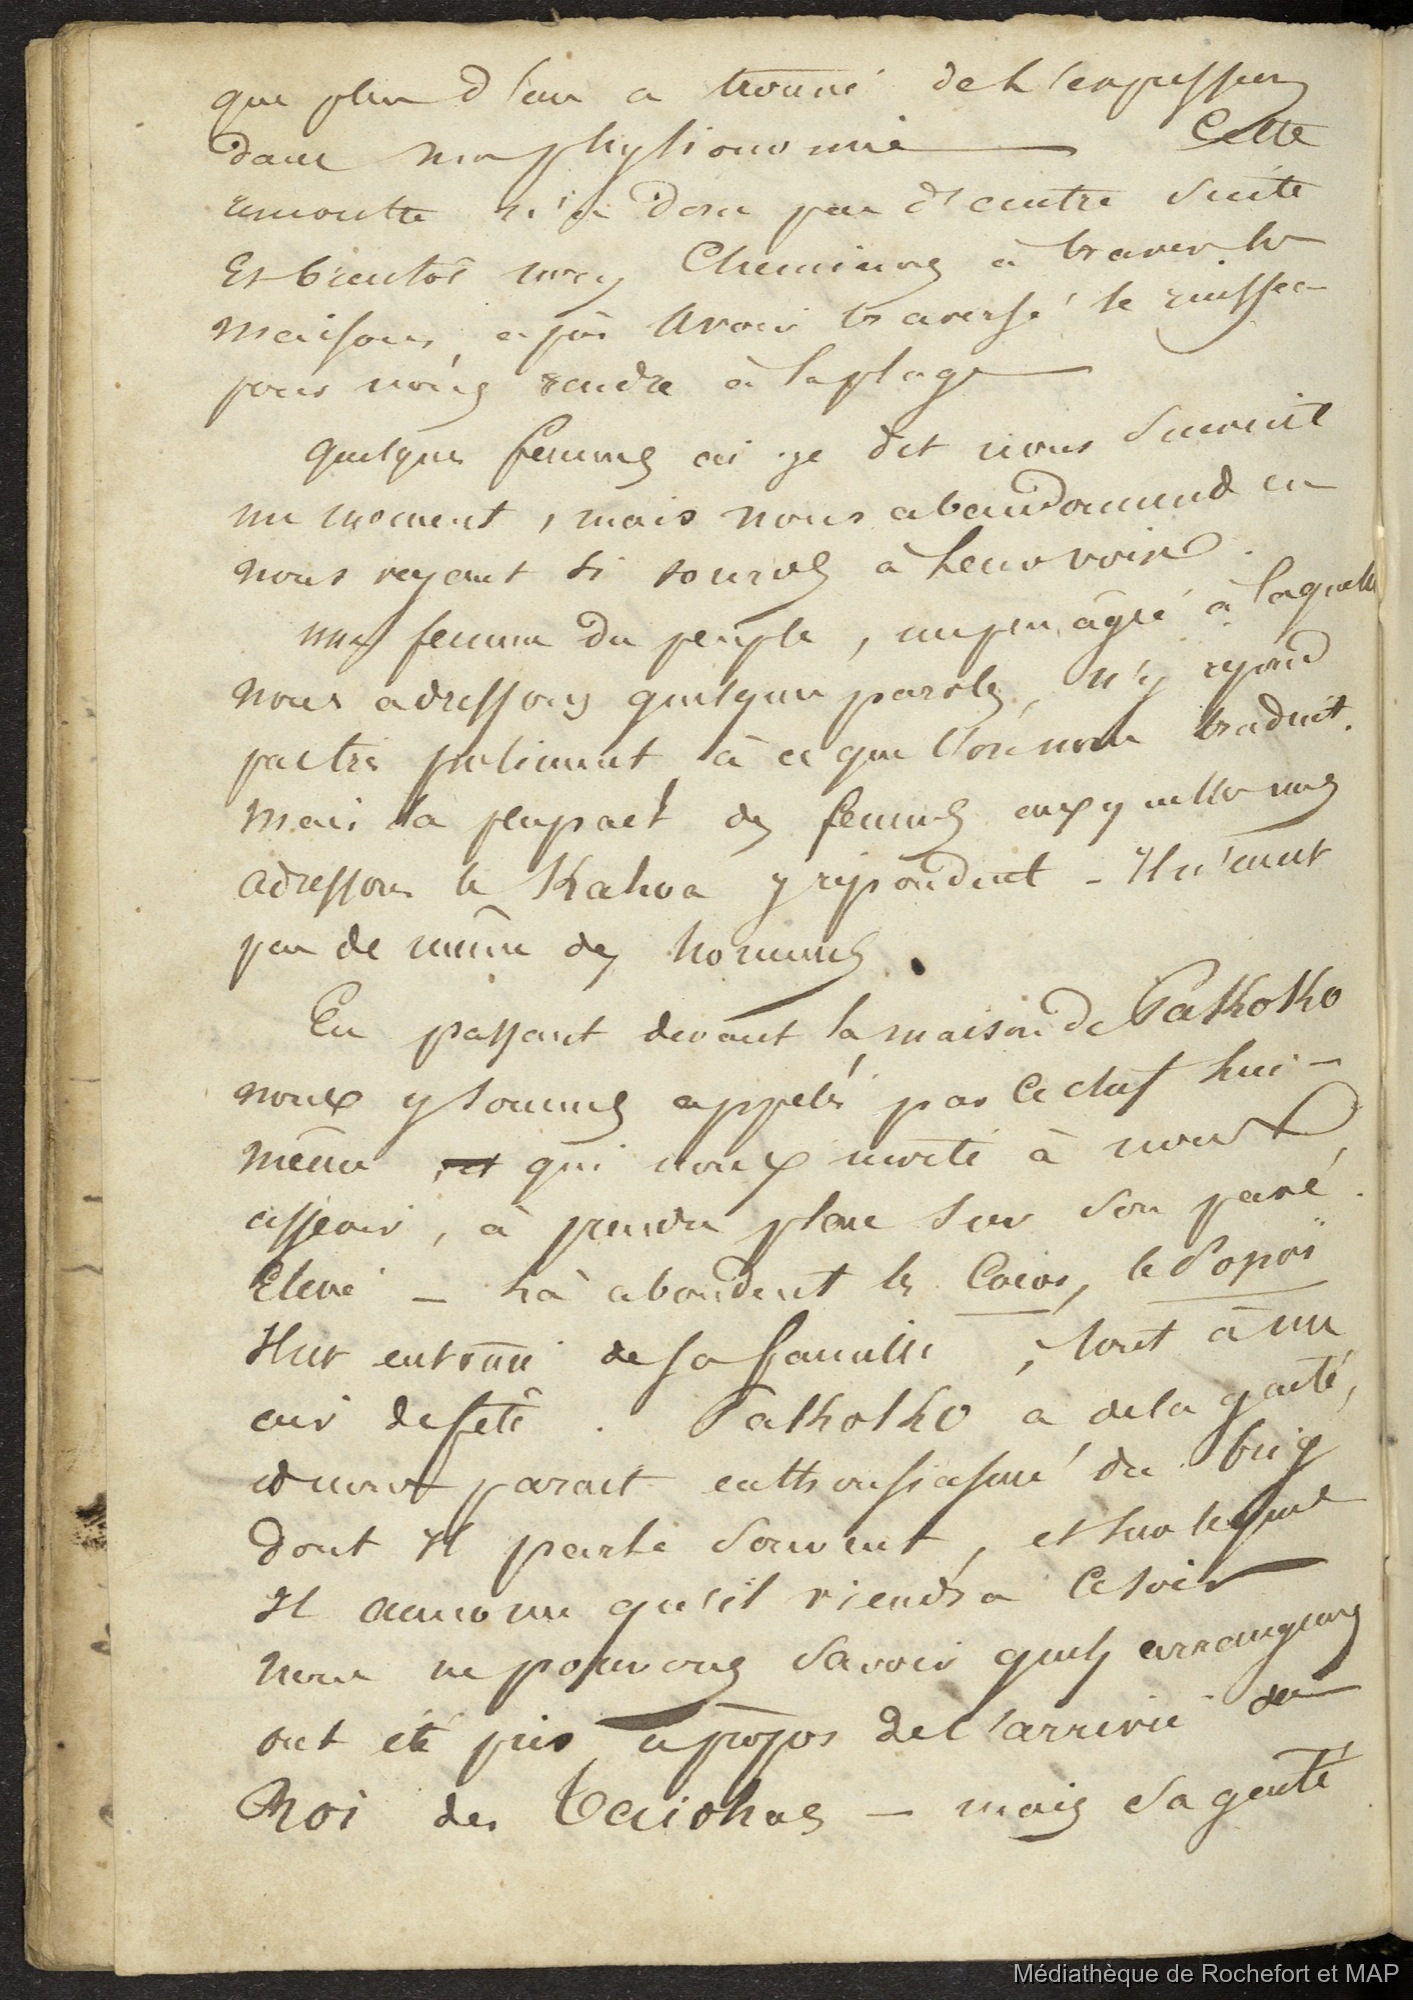 que plus d'un a trouvé de l'expression
dans ma physionomie — Cette
rencontre n'a donc pas d'autre suite
Et bientôt nous cheminons à travers les
maisons, après avoir traversé le ruisseau
pour nous rendre à la plage —
quelques femmes ai-je dit nous suivent
un moment, mais nous abandonnent en
nous voyant si sourds à leur voix.
une femme du peuple, un peu agée à laquelle
nous adressons quelques paroles, n'y répond
pas très poliment à ce que l'on nous traduit.
mais la plupart des femmes auxquelles nous
adressons le Kahoa y répondent - Il n'en est
pas de même des hommes.
En passant devant la maison de Pakoko
nous y sommes appelés par le chef lui-
même, et qui nous invite à nous
asseoir, à prendre place sur son pavé
Elevé — Là abondent les Cocos, le Popoï
Il est entouré de sa famille, tout à un
air de fête. Pakoko a de la gaité,
et nous parait enthousiasmé du brig
dont Il parle souvent, et sur lequel
Il annonce qu'il viendra ce soir
nous ne pouvons savoir quels arrangemens
ont été pris à propos de l'arrivée du
Roi des Taiohas — mais sa gaité
Médiathèque de Rochefort et MAP